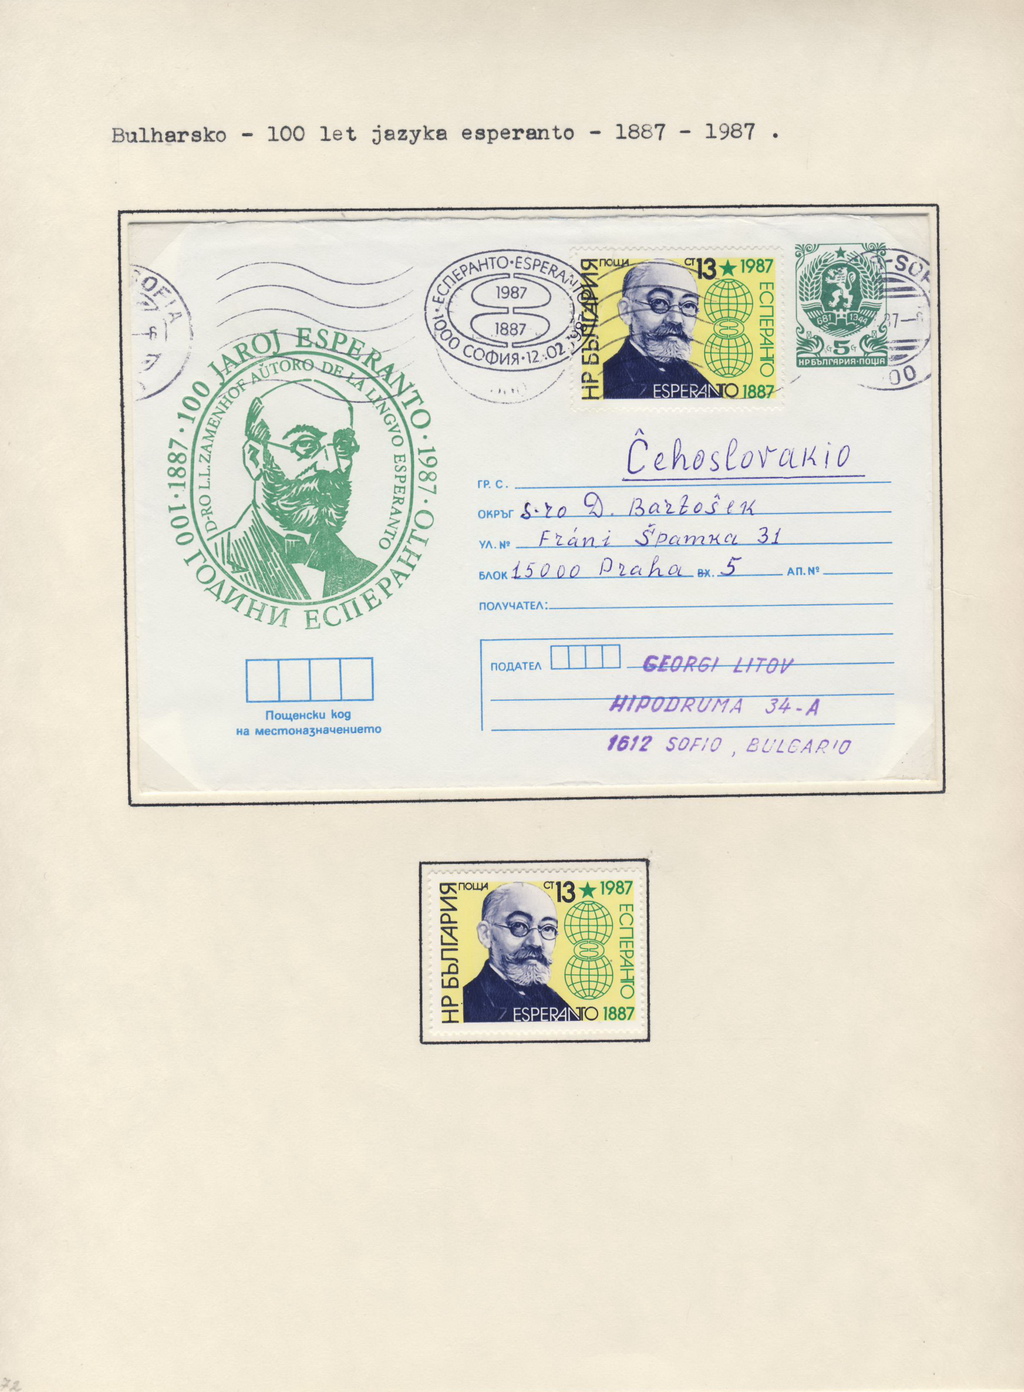 Bulharsko - 100 let jazyka esperanto - 1887 - 1987 .
SOFIA
ЕСПЕРАНТО · ESPERAN
1987
1887
1000 СОФИЯ · 12.02.1987
НР БЪЛГАРИЯ
ПОЩА
СТ 13 ★ 1987
ЕСПЕРАНТО
ESPERANTO 1887
681 1944
5
НР БЪЛГАРИЯ-ПОЩА
100 ГОДИНИ ЕСПЕРАНТО · 1887 · 100 JAROJ ESPERANTO · 1987
D-RO L.L.ZAMENHOF AŬTORO DE LA LINGVO ESPERANTO
Ĉehoslovakio
ГР. С.
ОКРЪГ S-ro D. Bartošek
УЛ. № Fráni Šrámka 31
БЛОК 15000 Praha ВХ. 5 АП. №
ПОЛУЧАТЕЛ:
ПОДАТЕЛ GEORGI LITOV
HIPODRUMA 34-A
1612 SOFIO, BULGARIO
Пощенски код
на местоназначението
НР БЪЛГАРИЯ
ПОЩА
СТ 13 ★ 1987
ЕСПЕРАНТО
ESPERANTO 1887
72